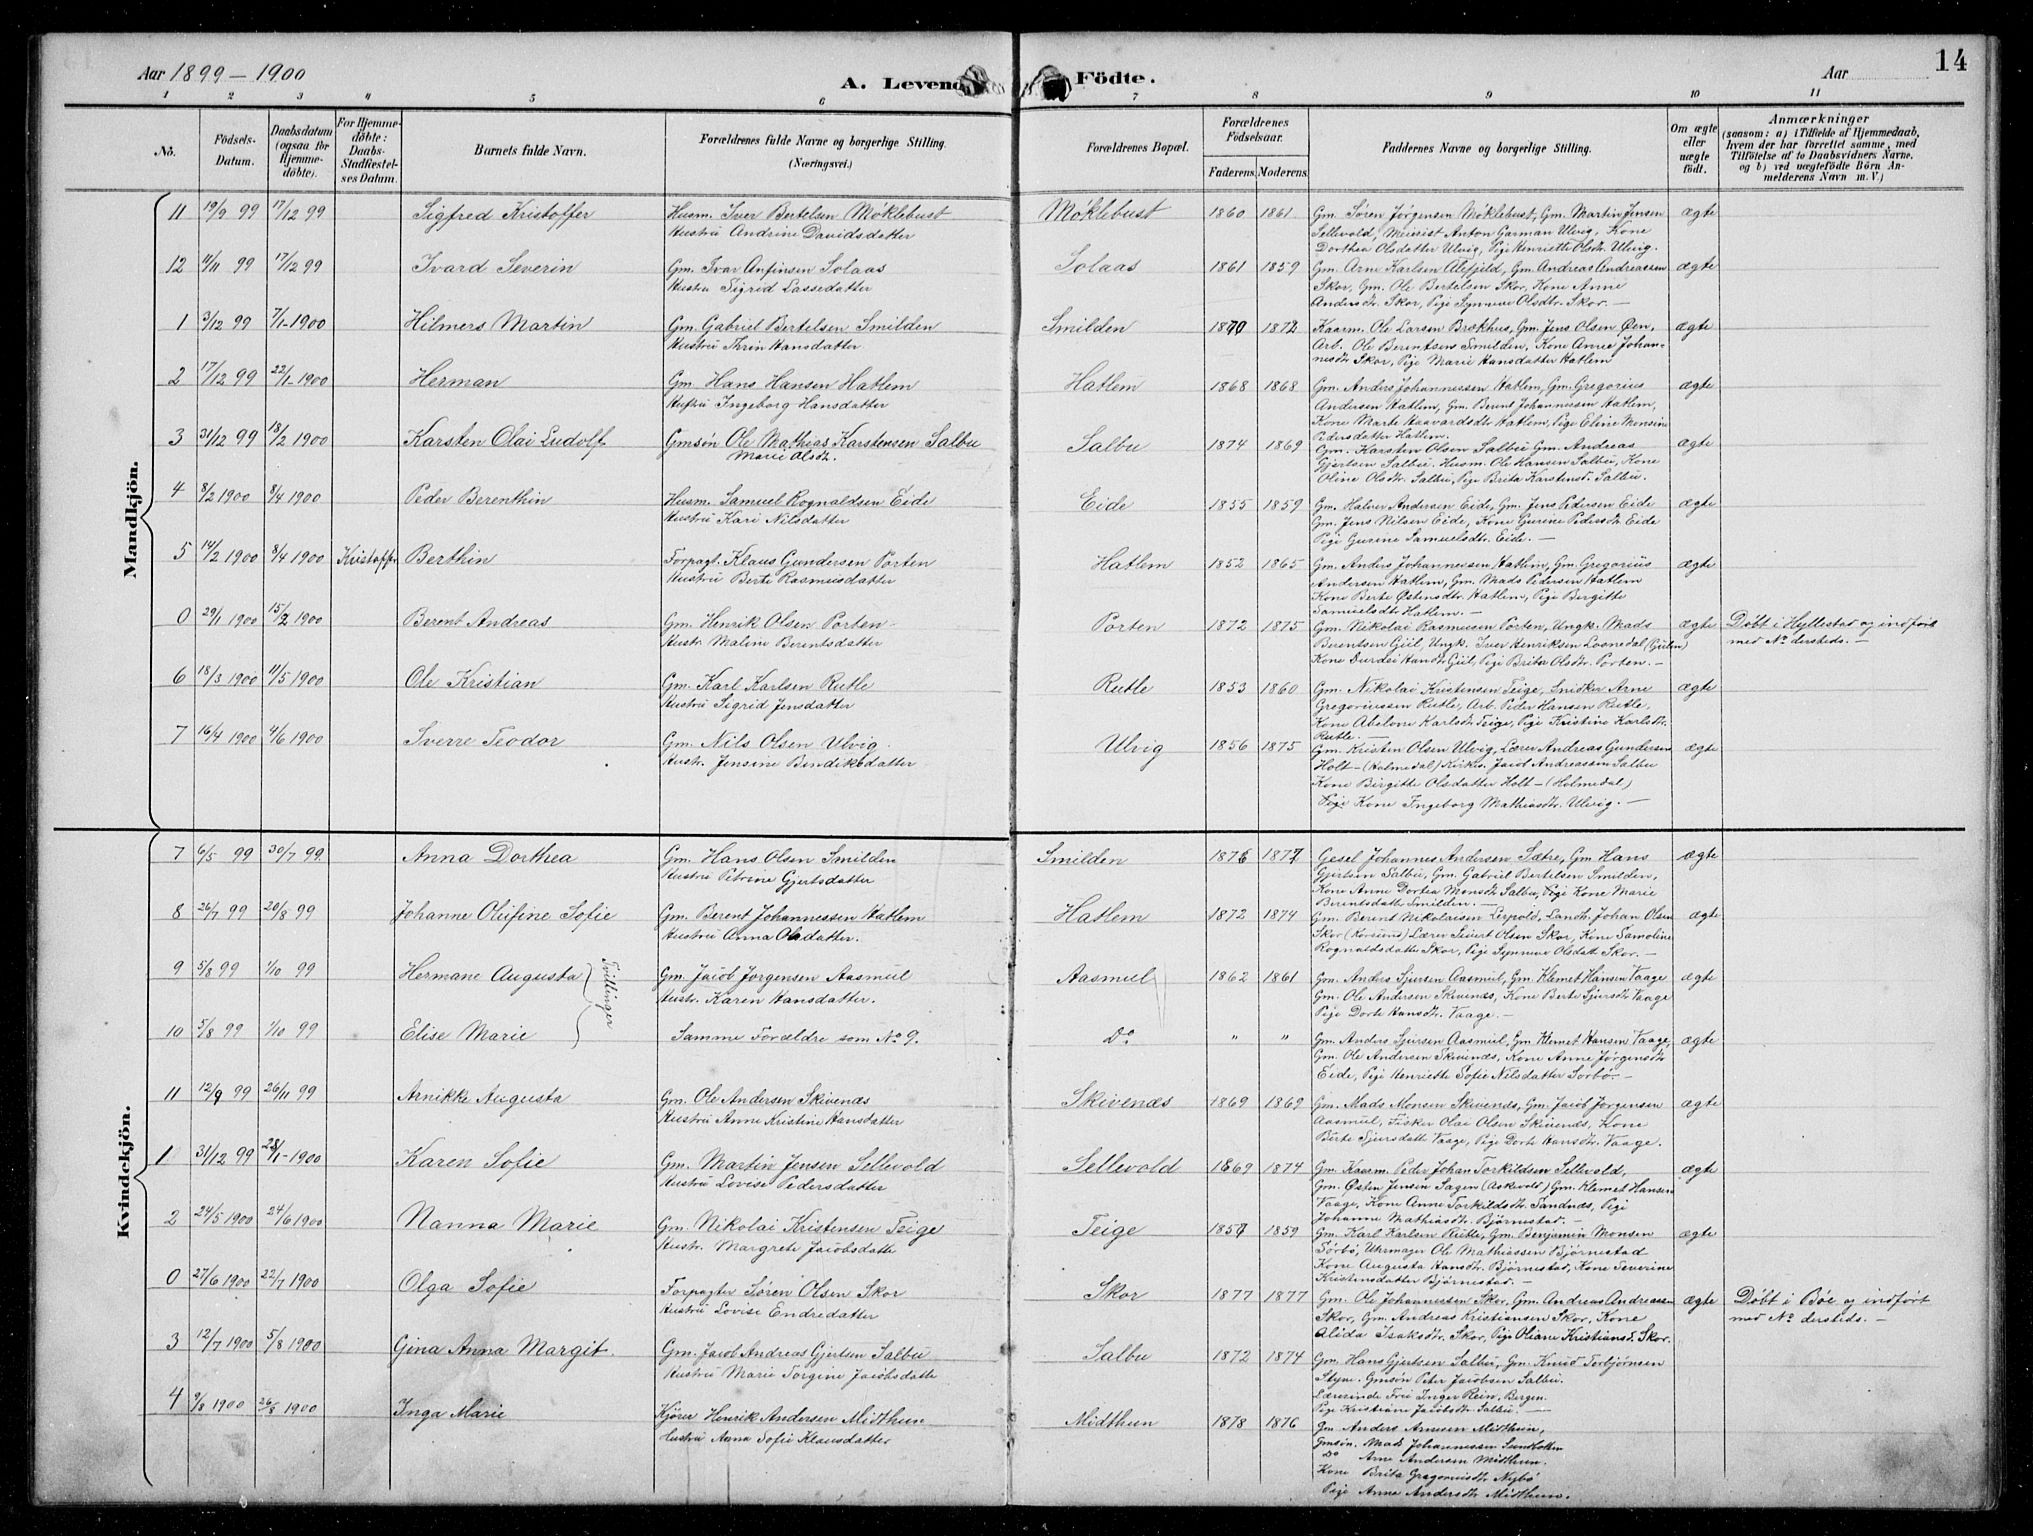 Aar 1899-1900
A. Levende Födte.
Aar
14
1 2 3 4 5 6 7 8 9 10 11
No.
Födsels-Datum.
Daabsdatum (ogsaa for Hjemmedöbte).
For Hjemmedöbte: Daabs-Stadfestelses Datum.
Barnets fulde Navn.
Forældrenes fulde Navne og borgerlige Stilling. (Næringsvei.)
Forældrenes Bopæl.
Forældrenes Födselsaar.
Faderens. Moderens.
Faddernes Navne og borgerlige Stilling.
Om ægte eller uægte födt.
Anmærkninger
(saasom: a) i Tilfælde af Hjemmedaab,
hvem der har forrettet samme, med
Tilföielse af to Daabsvidners Navne.
og b) ved uægtefödte Börn Anmelderens Navn m. V.)
Mandkjön.
11 19/9 99 17/12 99 Sigfred Kristoffer Husm. Iver Bertelsen Møklebust Møklebust 1860 1861 Gm. Søren Jørgensen Møklebust, Gm. Martin Jensen ægte
Hustru Andrine Davidsdatter Sellevold, Anton Garman Ulvig, Kone
Dorthea Olsdatter Ulvig, Pige Henriette Olsdtr. Ulvig.
12 11/11 99 17/12 99 Ivard Severin Gm. Ivar Anfinsen Solaas Solaas 1861 1859 Gm. Arne Karlsen Alefjeld, Gm. Andreas Andreassen ægte
Hustru Sigrid Lassedatter Skor, Gm. Ole Bertelsen Skor, Kone Anne
Andersdtr. Skor, Pige Synneve Olsdtr. Skor. —
1 3/12 99 7/1-1900 Hilmers Martin Gm. Gabriel Bertelsen Smilden Smilden 1870 1872 Kaarm. Ole Larsen Brækhus, Gm. Jens Olsen Øen, ægte
Hustru Thrin Hansdatter Arb. Ole Berentsen Smilden, Kone Anne Johan-
nesdtr Skor, Pige Marie Hansdatter Hatlem
2 17/12 99 22/1-1900 Herman Gm. Hans Hansen Hatlem Hatlem 1868 1868 Gm. Anders Johannessen Hatlem, Gm. Gregorius ægte
Hustru Ingeborg Hansdatter Andersen Hatlem, Gm. Berent Johannessen Hatlem,
Kone Marte Haavardsdtr Hatlem, Pige Eline Monsine
Pedersdatter Hatlem.
3 31/12 99 18/2 1900 Karsten Olai Ludolf Gmsøn Ole Mathias Karstensen Salbu Salbu 1874 1869 Gm. Karsten Olsen Salbu Gm. Andreas ægte
Marie Olsdtr. Gjertsen Salbu. Husm. Ole Hansen Salbu, Kone
Oline Olsdtr. Salbu, Pige Brita Karstensd. Salbu.
4 8/2 1900 8/4 1900 Peder Berenthin Husm. Samuel Rognaldsen Eide Eide 1855 1859 Gm. Halver Andersen Eide, Gm. Jens Pedersen Eide ægte
Hustru Kari Nilsdatter Gm. Jens Nilsen Eide, Kone Gurine Pedersdtr Eide
Pige Gurine Samuelsdtr. Eide. —
5 14/2 1900 8/4 1900 Kristoffer Berthin Forpagt. Klaus Gundersen Porten Hatlem 1852 1865 Gm. Anders Johannessen Hatlem, Gm. Gregorius ægte
Hustru Berte Rasmusdatter Andersen Hatlem, Gm. Mads Pedersen Hatlem
Kone Berte Østensdtr. Hatlem, Pige Birgitte
Samuelsdtr Hatlem. —
0 29/1 1900 15/2 1900 Berent Andreas Gm. Henrik Olsen Porten Porten 1872 1875 Gm. Nikolai Rasmussen Porten, Ungk. Mads ægte Døbt i Hyllestad og indført
Hustr. Malene Berentsdatter Berentsen Giil, Ungk. Iver Henriksen (Giilen) med No dersteds. —
Kone Hansdtr Giil, Pige Brita Olsdtr. Porten. —
6 18/3 1900 11/5 1900 Ole Kristian Gm. Karl Karlsen Rutle Rutle 1853 1860 Gm. Nikolai Kristensen Teige, Snidker Arne ægte
Hustru Sigrid Jensdatter Gregoriussen Rutle, Arb. Peder Hansen Rutle,
Kone Abelone Karlsdtr. Teige, Pige Kristine Karlsdtr.
Rutle. —
7 16/4 1900 4/6 1900 Sverre Teodor Gm. Nils Olsen Ulvig. Ulvig 1856 1875 Gm. Kristen Olsen Ulvig, Lærer Andreas Gundersen ægte
Hustr. Jensine Bendiksdatter Holt - (Holmedal) Kirkes. Jacob Andreassen Salbu
Kone Birgitte Olsdatter Holt - (Holmedal)
Pige Kone Ingeborg Mathiasdtr. Ulvig. —
Kvindekjön.
7 6/5 99 30/7 99 Anna Dorthea Gm. Hans Olsen Smilden Smilden 1876 1877 Gesel Johannes Andersen Sætre, Gm. Hans ægte
Hustru Petrine Gjertsdatter Gjertsen Salbu, Gm. Gabriel Bertelsen Smilden,
Kone Anne Dortea Monsdtr Salbu, Pige Kone Marie
Berentsdatter Smilden. —
8 26/7 99 20/8 99 Johanne Olufine Sofie Gm. Berent Johannessen Hatlem Hatlem 1872 1874 Gm. Berent Nikolaisen Lerpold, Landh. Johan Olsen ægte
Hustru Anna Olsdatter. Skor (Korssund) Lærer Sivert Olsen Skor, Kone Samoline
Rognaldsdatter Skor, Pige Synneve Olsdatt. Skor. —
9 5/8 99 1/10 99 Hermane Augusta Tvillinger Gm. Jacob Jørgensen Aasmul Aasmul 1862 1861 Gm. Anders Sjursen Aasmul, Gm. Klemet Hansen Vaage ægte
Hustr. Karen Hansdatter. Gm. Ole Andersen Skivenæs, Kone Berte Sjursdtr Vaage
Pige Dorte Hansdtr. Vaage. —
10 5/8 99 1/10 99 Elise Marie Samme Forældre som No 9. Do " " Gm. Anders Sjursen Aasmul, Gm. Klemet Hansen Vaage, ægte
Gm. Ole Andersen Skivenæs, Kone Anne Jørgensdtr
Eide, Pige Henriette Sofie Nilsdatter Sorbø. —
11 12/9 99 26/11 99 Arnikke Augusta Gm. Ole Andersen Skivenæs Skivenæs 1869 1869 Gm. Mads Monsen Skivenæs, Gm. Jacob Jørgensen ægte
Hustru Anne Kristine Hansdatter Aasmul, Fisker Olai Olsen Skivenæs, Kone
Berte Sjursdatte Vaage, Pige Dorte Hansdtr. Vaage.
1 31/12 99 28/1-1900 Karen Sofie Gm. Martin Jensen Sellevold Sellevold 1869 1874 Gm. Kaarm. Peder Johan Torkildsen Sellevold, ægte
Hustru Lovise Pedersdatter Gm. Østen Jensen Sagen (Askevold) Gm. Klemet Hansen
Vaage, Kone Anne Torkildsdtr. Sandnæs, Pige
Johanne Mathiasdtr. Bjørnestad. —
2 24/5 1900 24/6 1900 Nanna Marie Gm. Nikolai Kristensen Teige Teige 1857 1859 Gm. Karl Karlsen Rutle, Gm. Benjamin Monsen ægte
Hustr. Margrete Jacobsdatte Sørbø, Uhrmager Ole Mathiassen Bjørnestad
Kone Augusta Hansdtr. Bjørnestad, Kone Severine
Kristensdatter Bjørnestad. —
0 27/6 1900 22/7 1900 Olga Sofie Forpagter Søren Olsen Skor Skor 1877 1877 Gm. Ole Johannessen Skor, Gm. Andreas Andreassen ægte Døbt i Bøe og indført
Hustru Lovise Endredatter Skor, Gm. Andreas Kristiansen Skor, Kone med No dersteds. —
Alida Isaksdtr. Skor, Pige Oliane Kristiansd. Skor.
3 12/7 1900 5/8 1900 Gina Anna Margit. Gm. Jacob Andreas Gjertsen Salbu Salbu 1872 1874 Gm. Hans Gjertsen Salbu, Gm. Knud Torbjørnsen ægte
Hustru Marie Torgine Jacobsdatte Styve. Gmsøn Peter Jacobsen Salbu.
Lærerinde Frk Inger Rein, Bergen.
Pige Kristiane Jacobsdtr. Salbu. —
4 9/8 1900 26/8 1900 Inga Marie Kjører Henrik Andersen Midthun Midthun 1878 1876 Gm Anders Arnesen Midthun,
Hustru Anna Sofie Klausdatter Gmsøn. Mads Johannessen
Do Arne Andersen Midthun.
Kone Brita Gregoriusdtr Nybø
Pige Anne Andersdtr. Midthun.